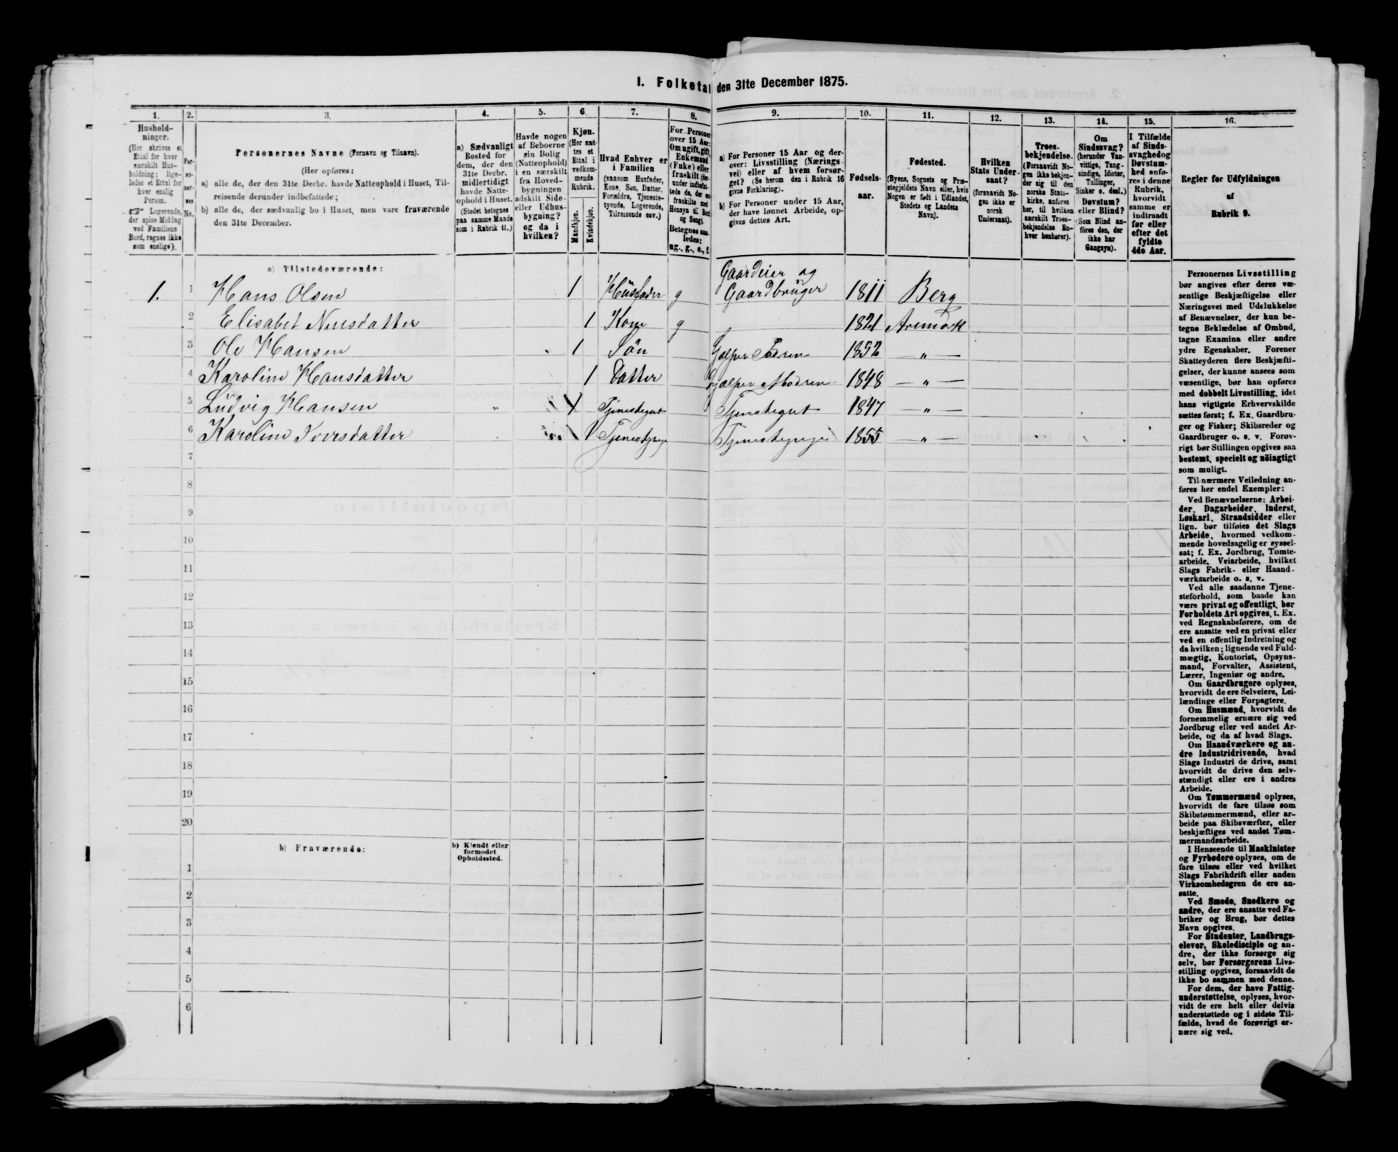 I. Folketal den 31te December 1875.
1. 2. 3. 4. 5. 6. 7. 8. 9. 10. 11. 12. 13. 14. 15. 16.
Personernes Navne (Fornavn og Tilnavn).
(Her opføres:
a) alle de, der den 31te Decbr. havde Natteophold i Huset, Tilreisende derunder indbefattede;
b) alle de, der sædvanlig bo i Huset, men vare fraværende den 31te December.
a) Sædvanligt Bosted for dem, der den 31te Decbr. midlertidigt havde Natteophold i Huset.
Havde nogen af Beboerne sin Bolig (Natteophold) i en særskilt fra Hovedbygningen adskilt Side- eller Udhusbygning? og da i hvilken?
Kjøn.
Mandkjøn. Kvindekjøn.
Hvad Enhver er i Familien
a) For Personer 15 Aar og derover: Livsstilling (Næringsvei) eller af hvem forsørget? (Se herom den i Rubrik 16 givne Forklaring).
b) For Personer under 15 Aar, der have lønnet Arbeide, opgives dettes Art.
Fødselsaar.
Fødested.
(Byens, Sognets og Præstegjeldets Navn eller, hvis Nogen er født i Udlandet, Stedets og Landets Navn).
Hvilken Stats Undersaat?
(forsaavidt Nogen ikke er norsk Undersaat).
Troesbekjendelse.
Om Sindssvag?
Døvstum? eller Blind?
I Tilfælde af Sindssvaghed og Døvstumhed anføres i denne Rubrik, hvorvidt samme er indtraadt før eller efter det fyldte 4de Aar.
Regler for Udfyldningen af Rubrik 9.
a) Tilstedeværende:
1. 1 Hans Olsen 1 Husfader g Gaardeier og Gaardbruger 1811 Berg
2 Elisabet Nilsdatter 1 Kone g 1821 Aremark
3 Ole Hansen 1 Søn Hjælper Faderen 1852 — „ —
4 Karoline Hansdatter 1 Datter Hjælper Moderen 1848 — „ —
5 Ludvig Hansen 1 Tjenestegut Tjenestegut 1847 — „ —
6 Karoline Iversdatter 1 Tjenestepige Tjenestepige 1855 — „ —
7
8
9
10
11
12
13
14
15
16
17
18
19
20
b) Fraværende: b) Kjendt eller formodet Opholdssted.
1
2
3
4
5
6
Personernes Livsstilling
bør angives efter deres væ-
sentlige Beskjæftigelse eller
Næringsvei med Udelukkelse
af Benævnelser, der kun be-
tegne Beklædelse af Ombud,
tagne Examina eller andre
ydre Egenskaber. Forener
Skatteyderen flere Beskjæfti-
gelser, der kunne ansees som
væsentlige, bør han opføres
med dobbelt Livsstilling, idet
hans vigtigste Erhvervskilde
sættes først; f. Ex. Gaardbru-
ger og Fisker; Skibsreder og
Gaardbruger o. s. v. Forøv-
rigt bør Stillingen opgives saa
bestemt, specielt og nøiagtigt
som muligt.
Til nærmere Veiledning an-
føres her endel Exempler:
Ved Benævnelserne: Arbei-
der, Dagarbeider, Inderst,
Løskarl, Strandsidder eller
lign. bør tilføies det Slags
Arbeide, hvormed vedkom-
mende hovedsagelig er syssel-
sat; f. Ex. Jordbrug, Tomte-
arbeide, Veiarbeide, hvilket
Slags Fabrik- eller Haand-
værksarbeide o. s. v.
Ved alle saadanne Tjene-
steforhold, som baade kan
være privat og offentligt, bør
Forholdets Art opgives, t. Ex.
ved Regnskabsførere, om de
ere ansatte ved en privat eller
ved en offentlig Indretning og
da hvilken; lignende ved Fuld-
mægtig, Kontorist, Opsyns-
mand, Forvalter, Assistent,
Lærer, Ingeniør og andre.
Om Gaardbrugere oplyses,
hvorvidt de ere Selveiere, Lei-
lændinge eller Forpagtere.
Om Husmænd, hvorvidt de
fornemmelig ernære sig ved
Jordbrug eller ved andet Ar-
beide, og da af hvad Slags.
Om Haandværkere og an-
dre Industridrivende, hvad
Slags Industri de drive, samt
hvorvidt de drive den selv-
stændigt eller ere i andres
Arbeide.
Om Tømmermænd oplyses,
hvorvidt de fare tilsøs som
Skibstømmermænd, eller ar-
beide paa Skibsværfter, eller
beskjæftiges ved andet Tøm-
mermandsarbeide.
I Henseende til Maskinister
og Fyrbødere oplyses, om de
fare tilsøs eller ved hvilket
Slags Fabrikdrift eller anden
Virksomhedsgren de ere an-
satte.
Ved Smede, Snedkere og
andre, der ere ansatte ved Fa-
briker og Brug, bør dettes
Navn opgives.
For Studenter, Landbrugs-
elever, Skoledisciple og an-
dre, der ikke forsørge sig
selv, bør Forsørgerens Livs-
stilling opgives, forsaavidt de
ikke bo sammen med denne.
For dem, der have Fattig-
understøttelse, oplyses, hvor-
vidt de ere helt eller delvis
understøttede og i sidste Til-
fælde, hvad de forøvrigt er-
nære sig ved.